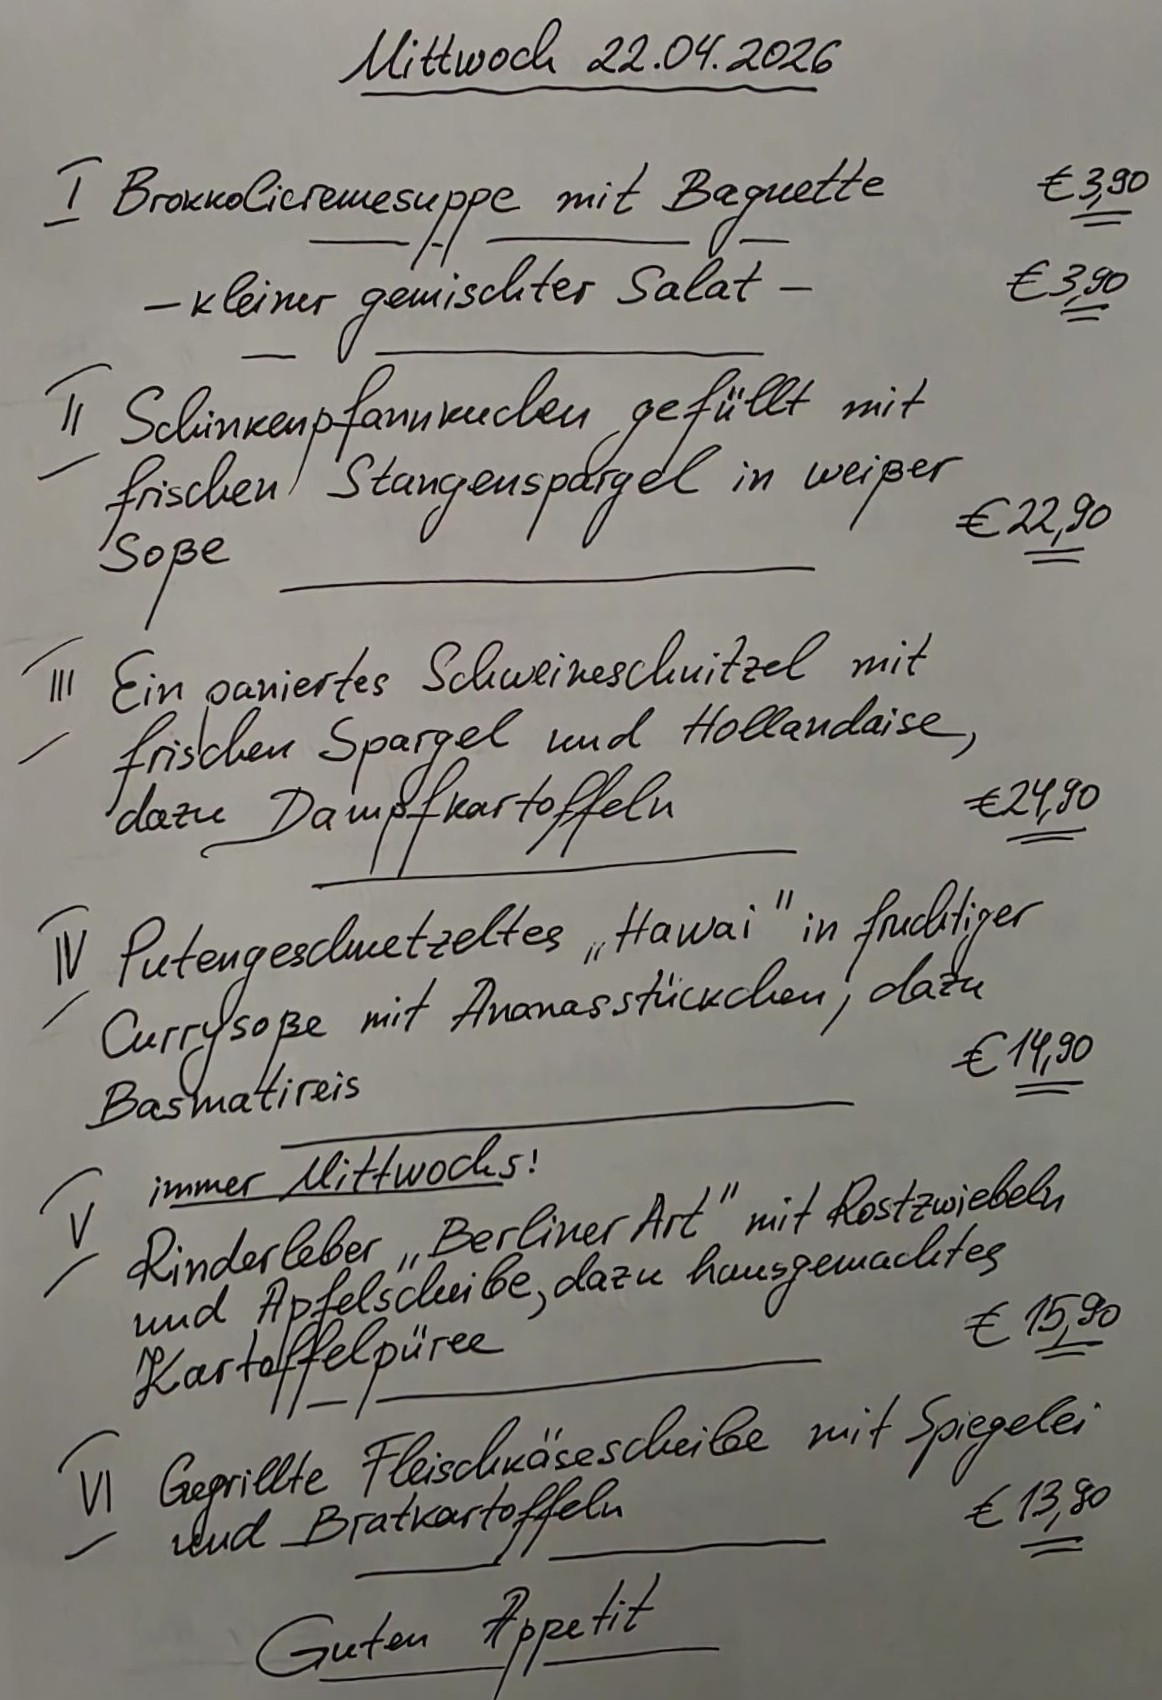 Mittwoch 22.04.2026
I Brokkolicremesuppe mit Baguette €3,90
– kleiner gemischter Salat – €3,90
II Schinkenpfannkuchen gefüllt mit
frischen Stangenspargel in weißer
Soße €22,90
III Ein paniertes Schweineschnitzel mit
frischen Spargel und Hollandaise,
dazu Dampfkartoffeln €24,90
IV Putengeschnetzeltes „Hawai" in fruchtiger
Currysoße mit Ananasstückchen, dazu
Basmatireis €14,90
immer Mittwochs!
V Rinderleber „Berliner Art" mit Rostzwiebeln
und Apfelscheibe, dazu hausgemachtes
Kartoffelpüree €15,90
VI Gegrillte Fleischkäsescheibe mit Spiegelei
und Bratkartoffeln €13,90
Guten Appetit